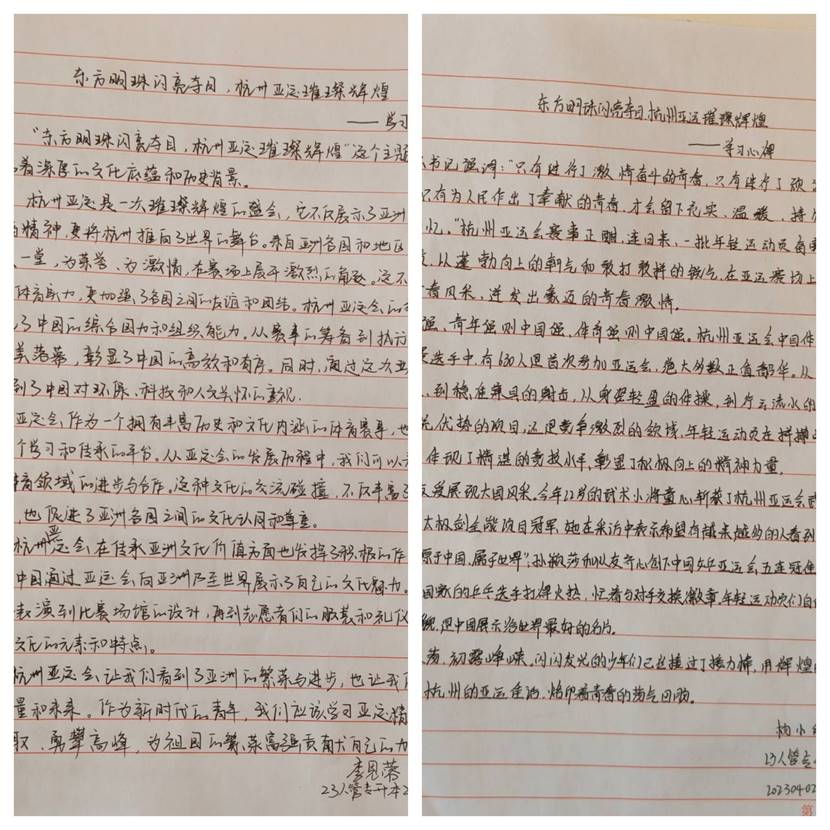 东方明珠闪亮夺目，杭州亚运璀璨辉煌
——学习
“东方明珠闪亮夺目，杭州亚运璀璨辉煌”这个主题
着深厚的文化底蕴和历史背景。
杭州亚运是一次璀璨辉煌的盛会，它不仅展示了亚洲
精神，更将杭州推向了世界的舞台。来自亚洲各国和地区
一堂，为荣誉、为激情，在赛场上展开激烈的角逐。这不
体育魅力，更加强了各国之间的友谊和团结。杭州亚运会的
了中国的综合国力和组织能力。从赛事的筹备到执行
美落幕，彰显了中国的高效和有序。同时，通过这次亚
到了中国对环保、科技和人文关怀的重视。
亚运会，作为一个拥有丰富历史和文化内涵的体育赛事，也
个学习和传承的平台。从亚运会的发展历程中，我们可以
体育领域的进步与合作。这种文化的交流碰撞，不仅丰富了
，也促进了亚洲各国之间的文化认同和尊重。
杭州亚运会，在传承亚洲文化价值方面也发挥了积极的作
中国通过亚运会，向亚洲乃至世界展示了自己的文化魅力。
表演到比赛场馆的设计，再到志愿者们的服装和礼仪
文化的元素和特点。
杭州亚运会，让我们看到了亚洲的繁荣与进步，也让我们
量和未来。作为新时代的青年，我们应该学习亚运精
取、勇攀高峰，为祖国的繁荣富强贡献自己的力
李思蓉
23人管专升本2
东方明珠闪亮夺目，杭州亚运璀璨辉煌
——学习心得
书记强调：“只有进行了激情奋斗的青春，只有进行了顽
只有为人民作出了奉献的青春，才会留下充实、温暖、持
忆。”杭州亚运会赛事正酣，连日来，一批年轻运动员
，从蓬勃向上的朝气和敢打敢拼的锐气，在亚运赛场上
青春风采，迸发出豪迈的青春激情。
强，青年强则中国强，体育强则中国强。杭州亚运会中国体
选手中，有630人是首次参加亚运会，绝大多数正值韶华。从
，到稳、准兼具的射击，从身姿轻盈的体操，到行云流水的
优势的项目，还是竞争激烈的领域，年轻运动员在拼搏
体现了精湛的竞技水平，彰显了积极向上的精神力量。
发展现大国风采。今年22岁的武术小将童心，斩获了杭州亚运会
太极剑全能项目冠军，她在采访中表示希望有越来越多的人看到
源于中国，属于世界”；孙颖莎和队友齐心创下中国女乒亚运会五连冠佳
国家的乒乓选手打得火热，忙着与对手交换徽章，年轻运动员们自
貌，是中国展示给世界最好的名片。
，初露峥嵘，闪闪发光的少年们已经接过了接力棒，用辉煌
杭州的亚运佳话，烙印着青春的
杨小
23人管专
20230402
第